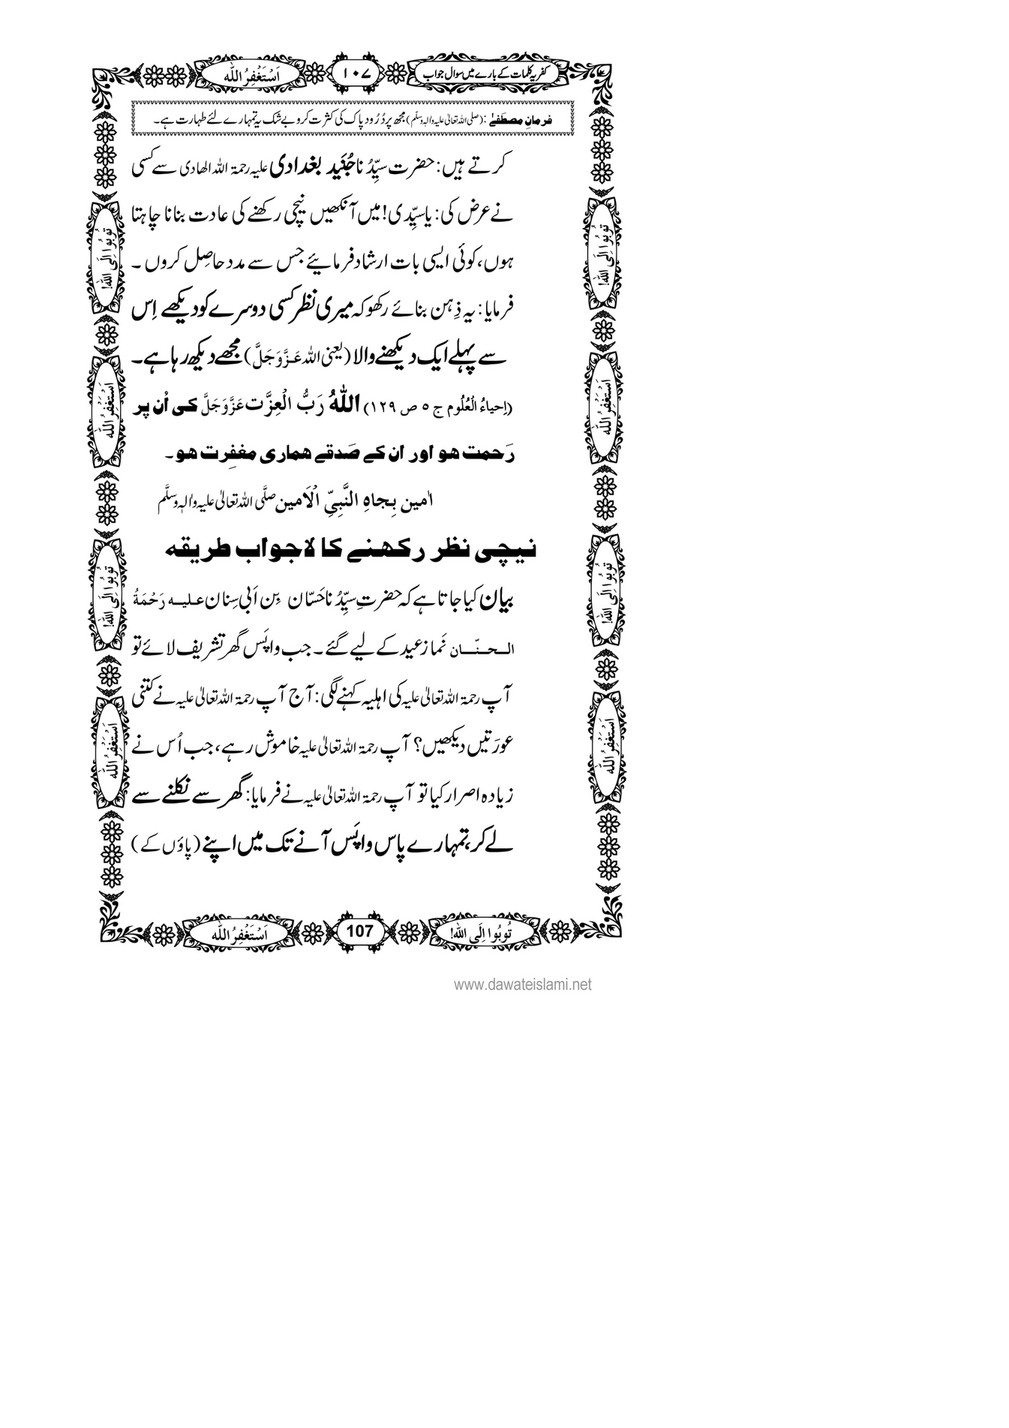 کفریہ کلمات کے بارے میں سوال جواب
۱۰۷
اَسْتَغْفِرُ اللہ
فرمانِ مصطَفٰے : (صلی اللہ تعالیٰ علیہ والہٖ وسلّم) مجھ پر دُرُود پاک کی کثرت کرو بے شک یہ تمہارے لئے طہارت ہے۔
کرتے ہیں: حضرت سیِّدُنا جُنَید بغدادی علیہ رحمۃ اللہ الھادی سے کسی
نے عرض کی: یا سیِّدی! میں آنکھیں نیچی رکھنے کی عادت بنانا چاہتا
ہوں، کوئی ایسی بات ارشاد فرمائیے جس سے مدد حاصِل کروں ۔
فرمایا: یہ ذِہن بنائے رکھو کہ میری نظر کسی دوسرے کو دیکھے اِس
سے پہلے ایک دیکھنے والا (یعنی اللہ عَزَّوَجَلَّ) مجھے دیکھ رہا ہے۔
(اِحیاءُ الْعُلُوم ج ۵ ص ۱۲۹) اللہُ رَبُّ الْعِزَّت عَزَّوَجَلَّ کی اُن پر
رَحمت ہو اور ان کے صَدقے ہماری مغفِرت ہو۔
اٰمین بِجاہِ النَّبِیِّ الْاَمین صلَّی اللہ تعالیٰ علیہ واٰلہٖ وسلَّم
نیچی نظر رکھنے کا لاجواب طریقہ
بیان کیا جاتا ہے کہ حضرتِ سیِّدُنا حَسّان بِن اَبی سِنان علیہ رَحْمَۃُ
الحنّان نَمازِ عید کے لیے گئے۔ جب واپَس گھر تشریف لائے تو
آپ رحمۃ اللہ تعالیٰ علیہ کی اہلیہ کہنے لگی: آج آپ رحمۃ اللہ تعالیٰ علیہ نے کتنی
عورَتیں دیکھیں؟ آپ رحمۃ اللہ تعالیٰ علیہ خاموش رہے، جب اُس نے
زیادہ اصرار کیا تو آپ رحمۃ اللہ تعالیٰ علیہ نے فرمایا: گھر سے نکلنے سے
لے کر، تمہارے پاس واپَس آنے تک میں اپنے (پاؤں کے)
تُوبُوا اِلَی اللہ!
اَسْتَغْفِرُ اللہ
تُوبُوا اِلَی اللہ!
اَسْتَغْفِرُ اللہ
تُوبُوا اِلَی اللہ!
اَسْتَغْفِرُ اللہ
تُوبُوا اِلَی اللہ!
اَسْتَغْفِرُ اللہ
تُوبُوا اِلَی اللہ!
107
اَسْتَغْفِرُ اللہ
www.dawateislami.net